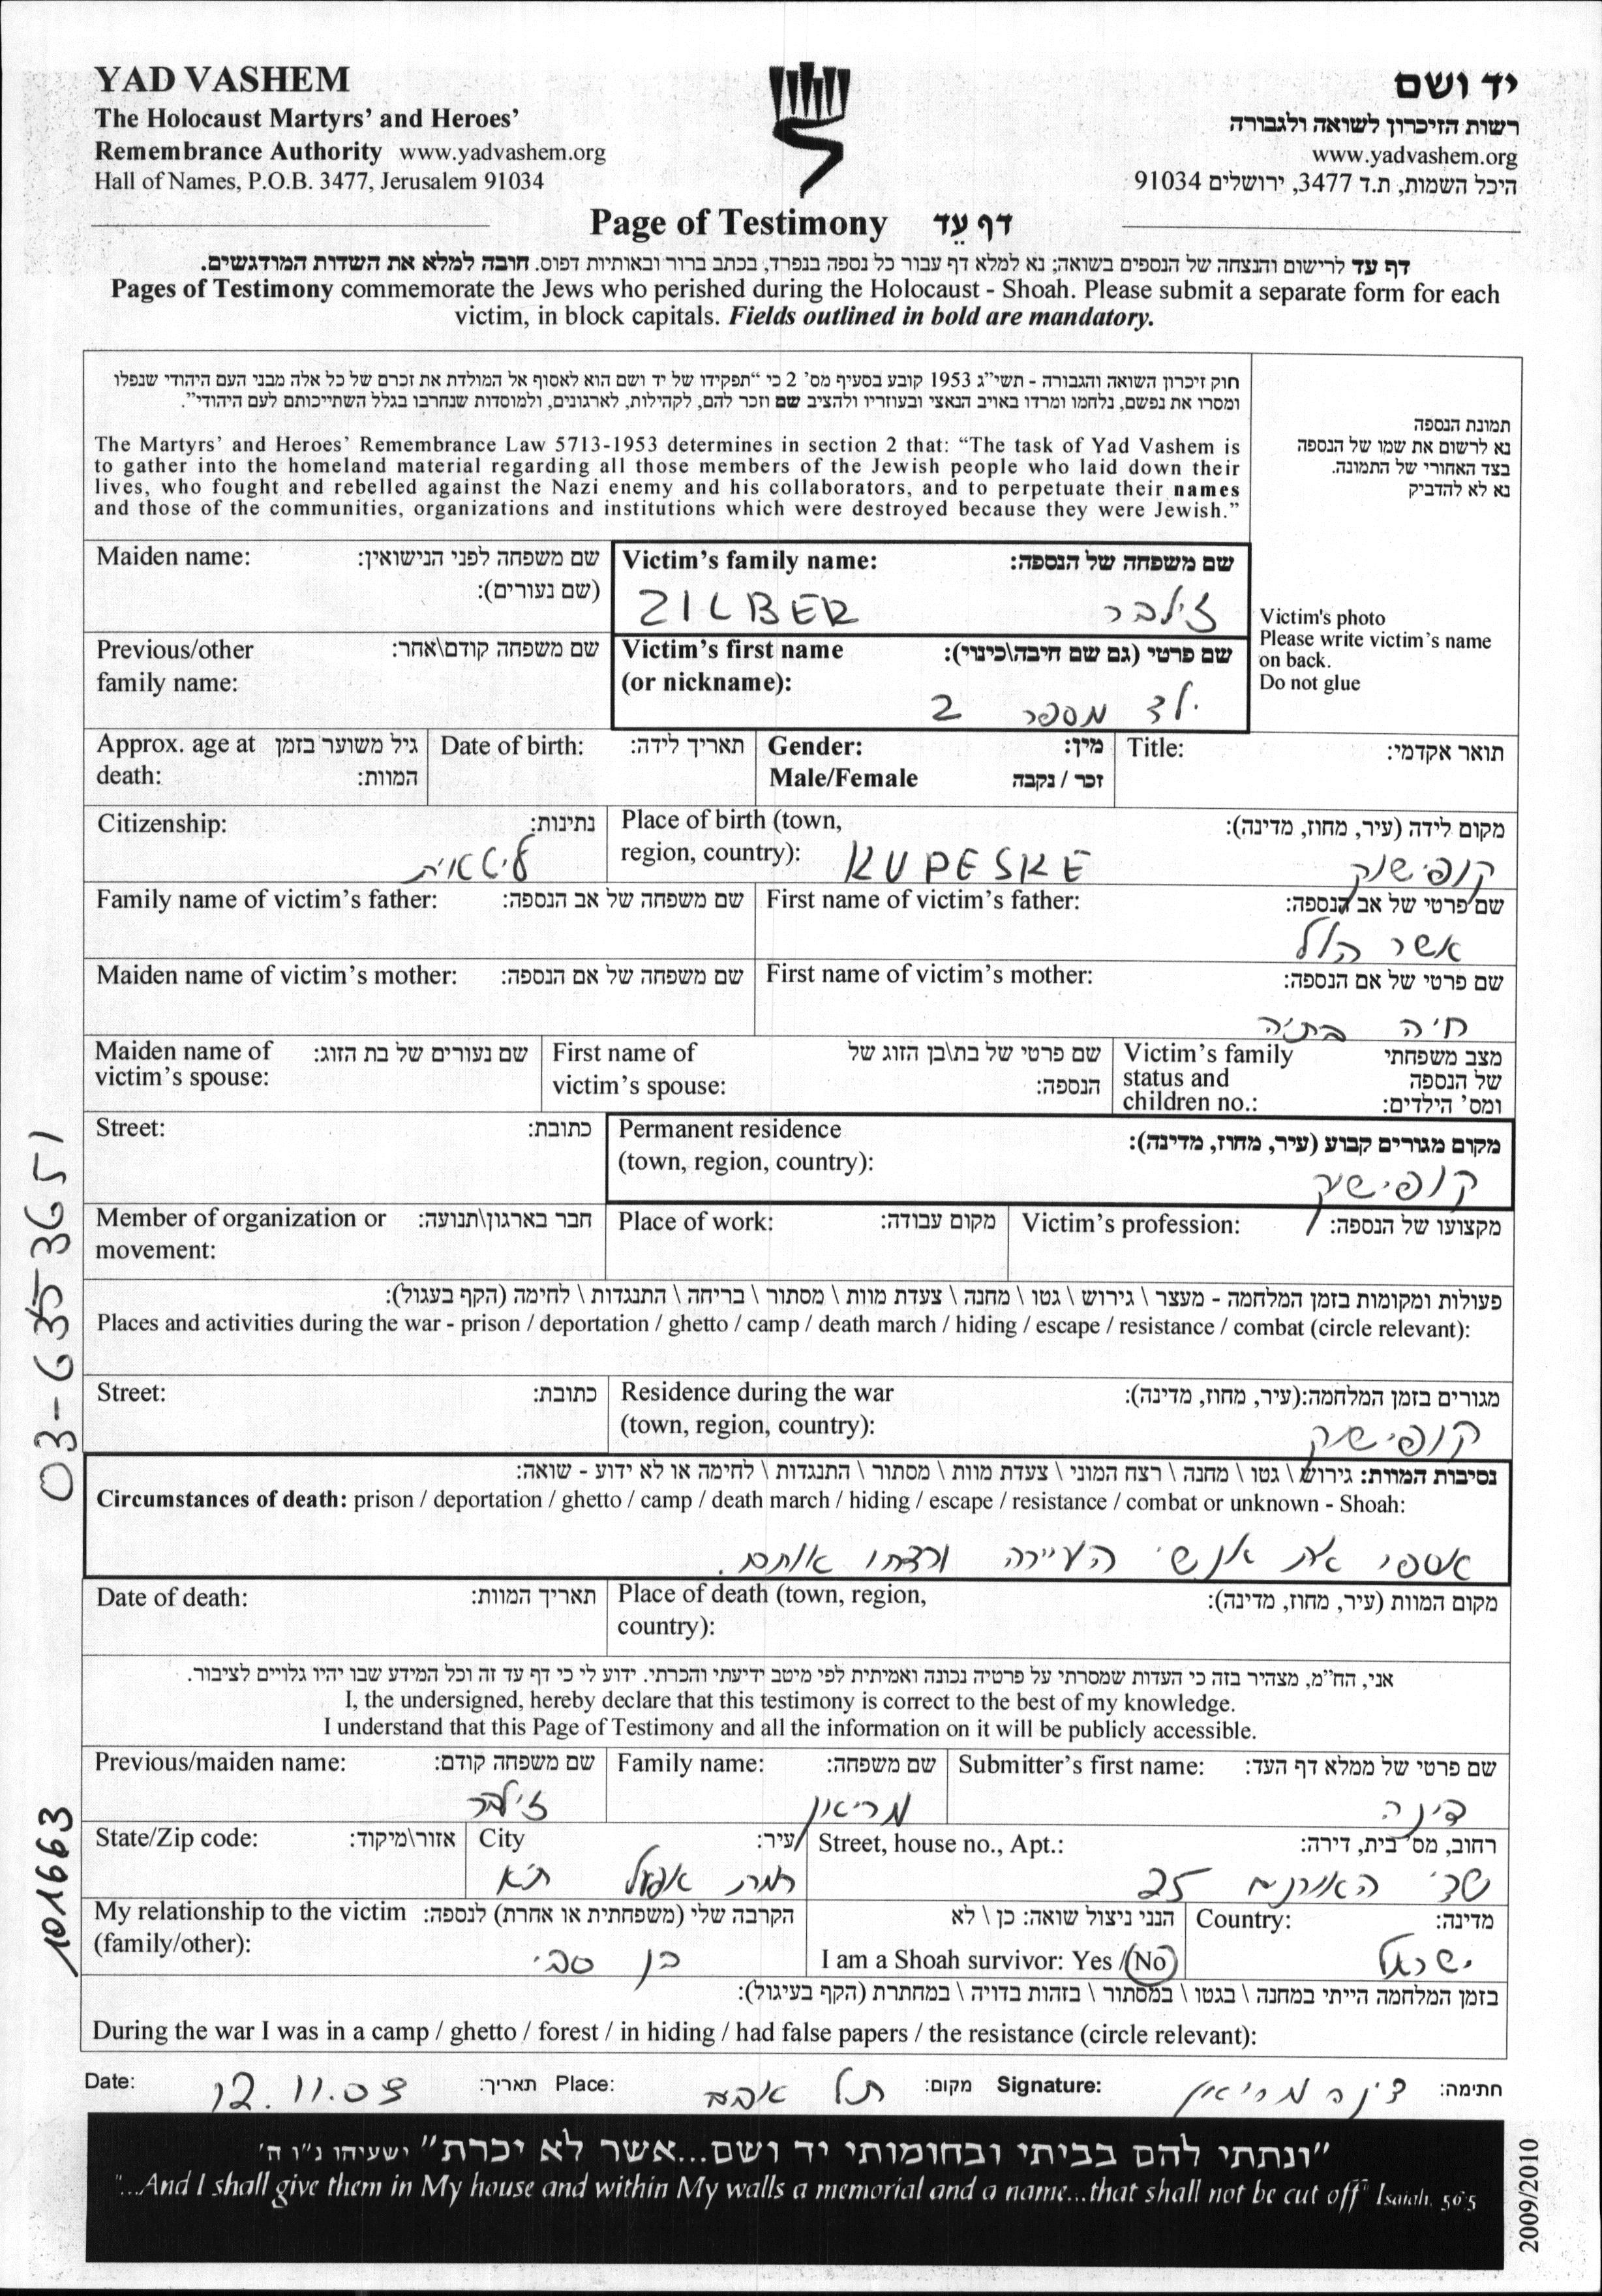 YAD VASHEM
The Holocaust Martyrs' and Heroes'
Remembrance Authority www.yadvashem.org
Hall of Names, P.O.B. 3477, Jerusalem 91034
יד ושם
רשות הזיכרון לשואה ולגבורה
www.yadvashem.org
היכל השמות, ת.ד 3477, ירושלים 91034
Page of Testimony דף עֵד
דף עד לרישום והנצחה של הנספים בשואה; נא למלא דף עבור כל נספה בנפרד, בכתב ברור ובאותיות דפוס. חובה למלא את השדות המודגשים.
Pages of Testimony commemorate the Jews who perished during the Holocaust - Shoah. Please submit a separate form for each
victim, in block capitals. Fields outlined in bold are mandatory.
חוק זיכרון השואה והגבורה - תשי"ג 1953 קובע בסעיף מס' 2 כי "תפקידו של יד ושם הוא לאסוף אל המולדת את זכרם של כל אלה מבני העם היהודי שנפלו
ומסרו את נפשם, נלחמו ומרדו באויב הנאצי ובעוזריו ולהציב שם וזכר להם, לקהילות, לארגונים, ולמוסדות שנחרבו בגלל השתייכותם לעם היהודי".
The Martyrs' and Heroes' Remembrance Law 5713-1953 determines in section 2 that: "The task of Yad Vashem is
to gather into the homeland material regarding all those members of the Jewish people who laid down their
lives, who fought and rebelled against the Nazi enemy and his collaborators, and to perpetuate their names
and those of the communities, organizations and institutions which were destroyed because they were Jewish."
תמונת הנספה
נא לרשום את שמו של הנספה
בצד האחורי של התמונה.
נא לא להדביק
Victim's photo
Please write victim's name
on back.
Do not glue
Maiden name: שם משפחה לפני הנישואין:
(שם נעורים):
Victim's family name: שם משפחה של הנספה:
ZILBER זילבר
Previous/other שם משפחה קודם\אחר:
family name:
Victim's first name שם פרטי (גם שם חיבה\כינוי):
(or nickname):
ילד מספר 2
Approx. age at גיל משוער בזמן
death: המוות:
Date of birth: תאריך לידה:
Gender: מין:
Male/Female זכר / נקבה
Title: תואר אקדמי:
Citizenship: נתינות:
ליטאית
Place of birth (town, מקום לידה (עיר, מחוז, מדינה):
region, country): KUPESKE קופישוק
Family name of victim's father: שם משפחה של אב הנספה:
First name of victim's father: שם פרטי של אב הנספה:
אשר הלל
Maiden name of victim's mother: שם משפחה של אם הנספה:
First name of victim's mother: שם פרטי של אם הנספה:
חיה בתיה
Maiden name of שם נעורים של בת הזוג:
victim's spouse:
First name of שם פרטי של בת\בן הזוג של
victim's spouse: הנספה:
Victim's family מצב משפחתי
status and של הנספה
children no.: ומס' הילדים:
Street: כתובת:
Permanent residence מקום מגורים קבוע (עיר, מחוז, מדינה):
(town, region, country):
קופישוק
Member of organization or חבר בארגון\תנועה:
movement:
Place of work: מקום עבודה:
Victim's profession: מקצועו של הנספה:
פעולות ומקומות בזמן המלחמה - מעצר \ גירוש \ גטו \ מחנה \ צעדת מוות \ מסתור \ בריחה \ התנגדות \ לחימה (הקף בעגול):
Places and activities during the war - prison / deportation / ghetto / camp / death march / hiding / escape / resistance / combat (circle relevant):
Street: כתובת:
Residence during the war מגורים בזמן המלחמה:(עיר, מחוז, מדינה):
(town, region, country):
קופישוק
נסיבות המוות: גירוש \ גטו \ מחנה \ רצח המוני \ צעדת מוות \ מסתור \ התנגדות \ לחימה או לא ידוע - שואה:
Circumstances of death: prison / deportation / ghetto / camp / death march / hiding / escape / resistance / combat or unknown - Shoah:
אספו את אנשי העיירה ורצחו אותם.
Date of death: תאריך המוות:
Place of death (town, region, מקום המוות (עיר, מחוז, מדינה):
country):
אני, הח"מ, מצהיר בזה כי העדות שמסרתי על פרטיה נכונה ואמיתית לפי מיטב ידיעתי והכרתי. ידוע לי כי דף עד זה וכל המידע שבו יהיו גלויים לציבור.
I, the undersigned, hereby declare that this testimony is correct to the best of my knowledge.
I understand that this Page of Testimony and all the information on it will be publicly accessible.
Previous/maiden name: שם משפחה קודם:
זילבר
Family name: שם משפחה:
מריאון
Submitter's first name: שם פרטי של ממלא דף העד:
דינה
State/Zip code: אזור\מיקוד:
City עיר:
רמת אפעל ת"א
Street, house no., Apt.: רחוב, מס' בית, דירה:
שד' האורנים 25
My relationship to the victim הקרבה שלי (משפחתית או אחרת) לנספה:
(family/other):
בן סבי
הנני ניצול שואה: כן \ לא
I am a Shoah survivor: Yes / No
Country: מדינה:
ישראל
בזמן המלחמה הייתי במחנה \ בגטו \ במסתור \ בזהות בדויה \ במחתרת (הקף בעיגול):
During the war I was in a camp / ghetto / forest / in hiding / had false papers / the resistance (circle relevant):
Date: 12.11.03 תאריך: Place: תל מקום: Signature: דינה מריאון חתימה:
"ונתתי להם בביתי ובחומותי יד ושם...אשר לא יכרת" ישעיהו נ"ו ה'
"...And I shall give them in My house and within My walls a memorial and a name...that shall not be cut off" Isaiah, 56:5
03-6353651
101663
2009/2010